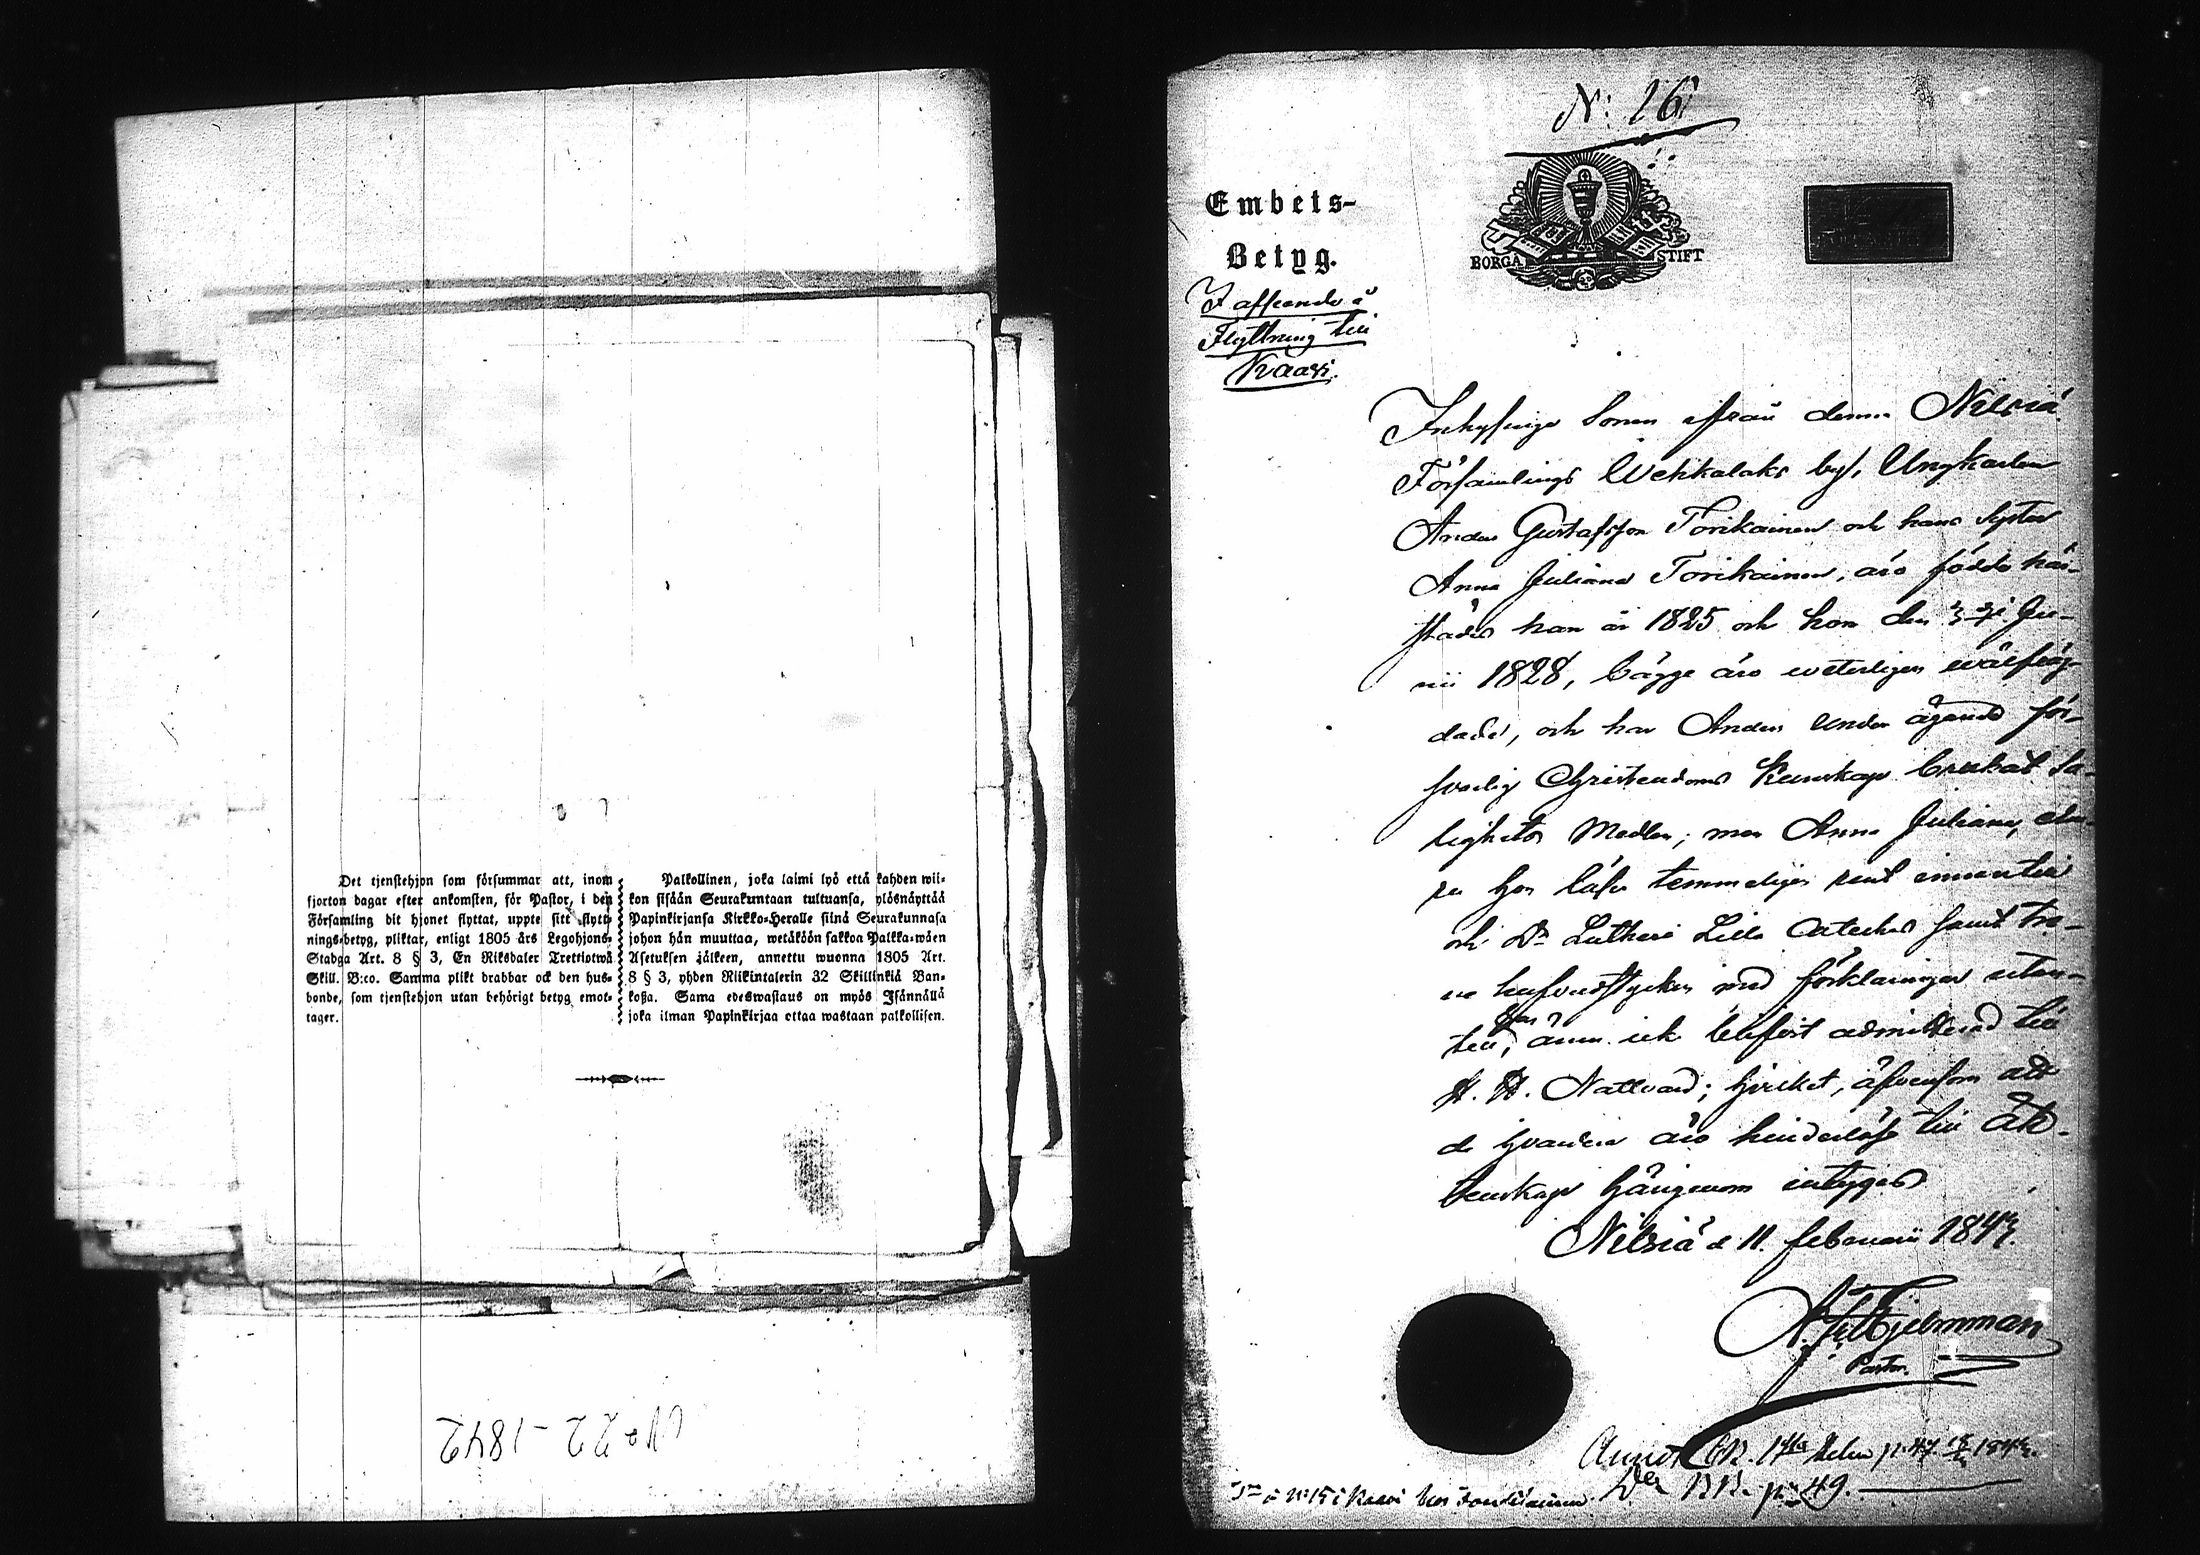 Det tjenstehjon som försummar att, inom
fjorton dagar efter ankomsten, för Pastor, i den
Församling dit hjonet flyttat, uppte sitt flytt-
nings-betyg, pliktar, enligt 1805 års Legohjons-
Stadga Art. 8 § 3, En Riksdaler Trettiotwå
Skill. B:co. Samma plikt drabbar ock den hus-
bonde, som tjenstehjon utan behörigt betyg emot-
tager.
Palkollinen, joka laimi lyö että kahden wii-
kon sisään Seurakuntaan tultuansa, ylösnäyttää
Papinkirjansa Kirkko-Heralle siinä Seurakunnasa
johon hän muuttaa, wetäköön sakkoa Palkka-wäen
Asetuksen jälkeen, annettu wuonna 1805 Art.
8 § 3, yhden Riikintalerin 32 Skillinkiä Ban-
koßa. Sama edeswastaus on myös Isännällä
joka ilman Papinkirjaa ottaa wastaan palkollisen.
No 22 - 1842
N: 26
Embets-
Betyg.
BORGÅ STIFT
I afseende å
Flyttning till
Kaavi.
Inhysings Sonen ifrån denna Nilsiä
Församlings Wehkalaks by, Ungkarlen
Anders Gustafsson Torikainen och hans Syster
Anna Juliana Torikainen, äro födde här-
städes han år 1825 och hon den Ju-
nii 1828, bägge äro weterligen wälfräg-
dade, och har Anders under ägande för-
svarlig Christendoms Kunskap brukat Sa-
lighets Medlen; men Anna Juliana, ehu-
ru hon läser temmeligen rent innantill
och Dr Lutheri Lilla Cateches samt tre-
ne hufvudstycken med förklaringar utan-
till, är hon ännu icke blifvit admitterad till
H. H. Nattvard; hvilket, äfvensom att
de hvardera äro hinderlöse till Äk-
tenskap härigenom intygas
Nilsiä d 11 februarii 1843.
Hjelmman
Pastor.
Annot. p. 47. 1843.
p. 49.